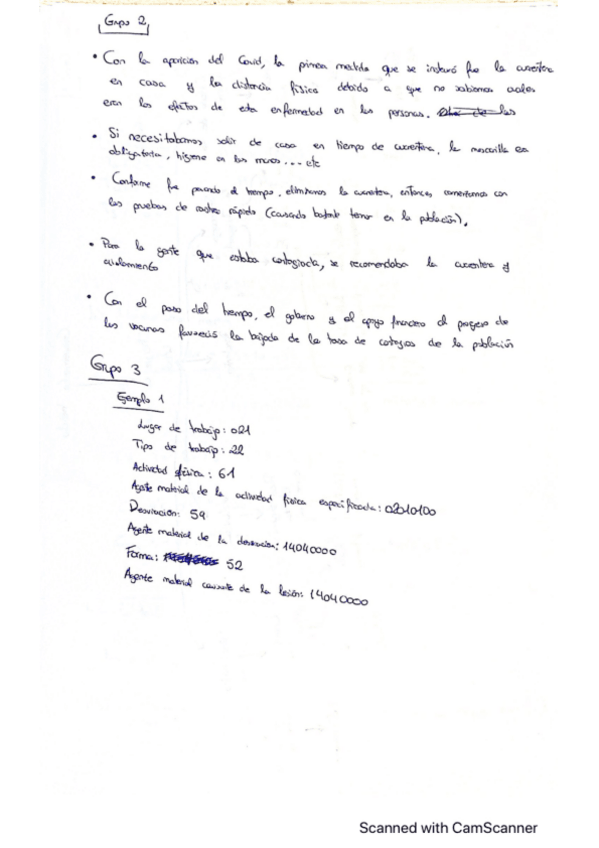 Grupo 2
• Con la aparición del Covid, la primera medida que se instauró fue la cuarentena
en casa y la distancia física debido a que no sabíamos cuales
eran los efectos de esta enfermedad en las personas.
• Si necesitabamos salir de casa en tiempo de cuarentena, la mascarilla era
obligatoria, higiene en las manos... etc
• Conforme fue pasando el tiempo, eliminamos la cuarentena, entonces comenzamos con
las pruebas de rastreo rápido (causando bastante temor en la población).
• Para la gente que estaba contagiada, se recomendaba la cuarentena y
aislamiento
• Con el paso del tiempo, el gobierno y el apoyo financiero al progreso de
las vacunas favoreció la bajada de la tasa de contagios de la población
Grupo 3
Ejemplo 1
Lugar de trabajo: 021
Tipo de trabajo: 22
Actividad física: 61
Agente material de la actividad física especificada: 02010100
Desviación: 59
Agente material de la desviación: 14040000
Forma: 52
Agente material causante de la lesión: 14040000
Scanned with CamScanner